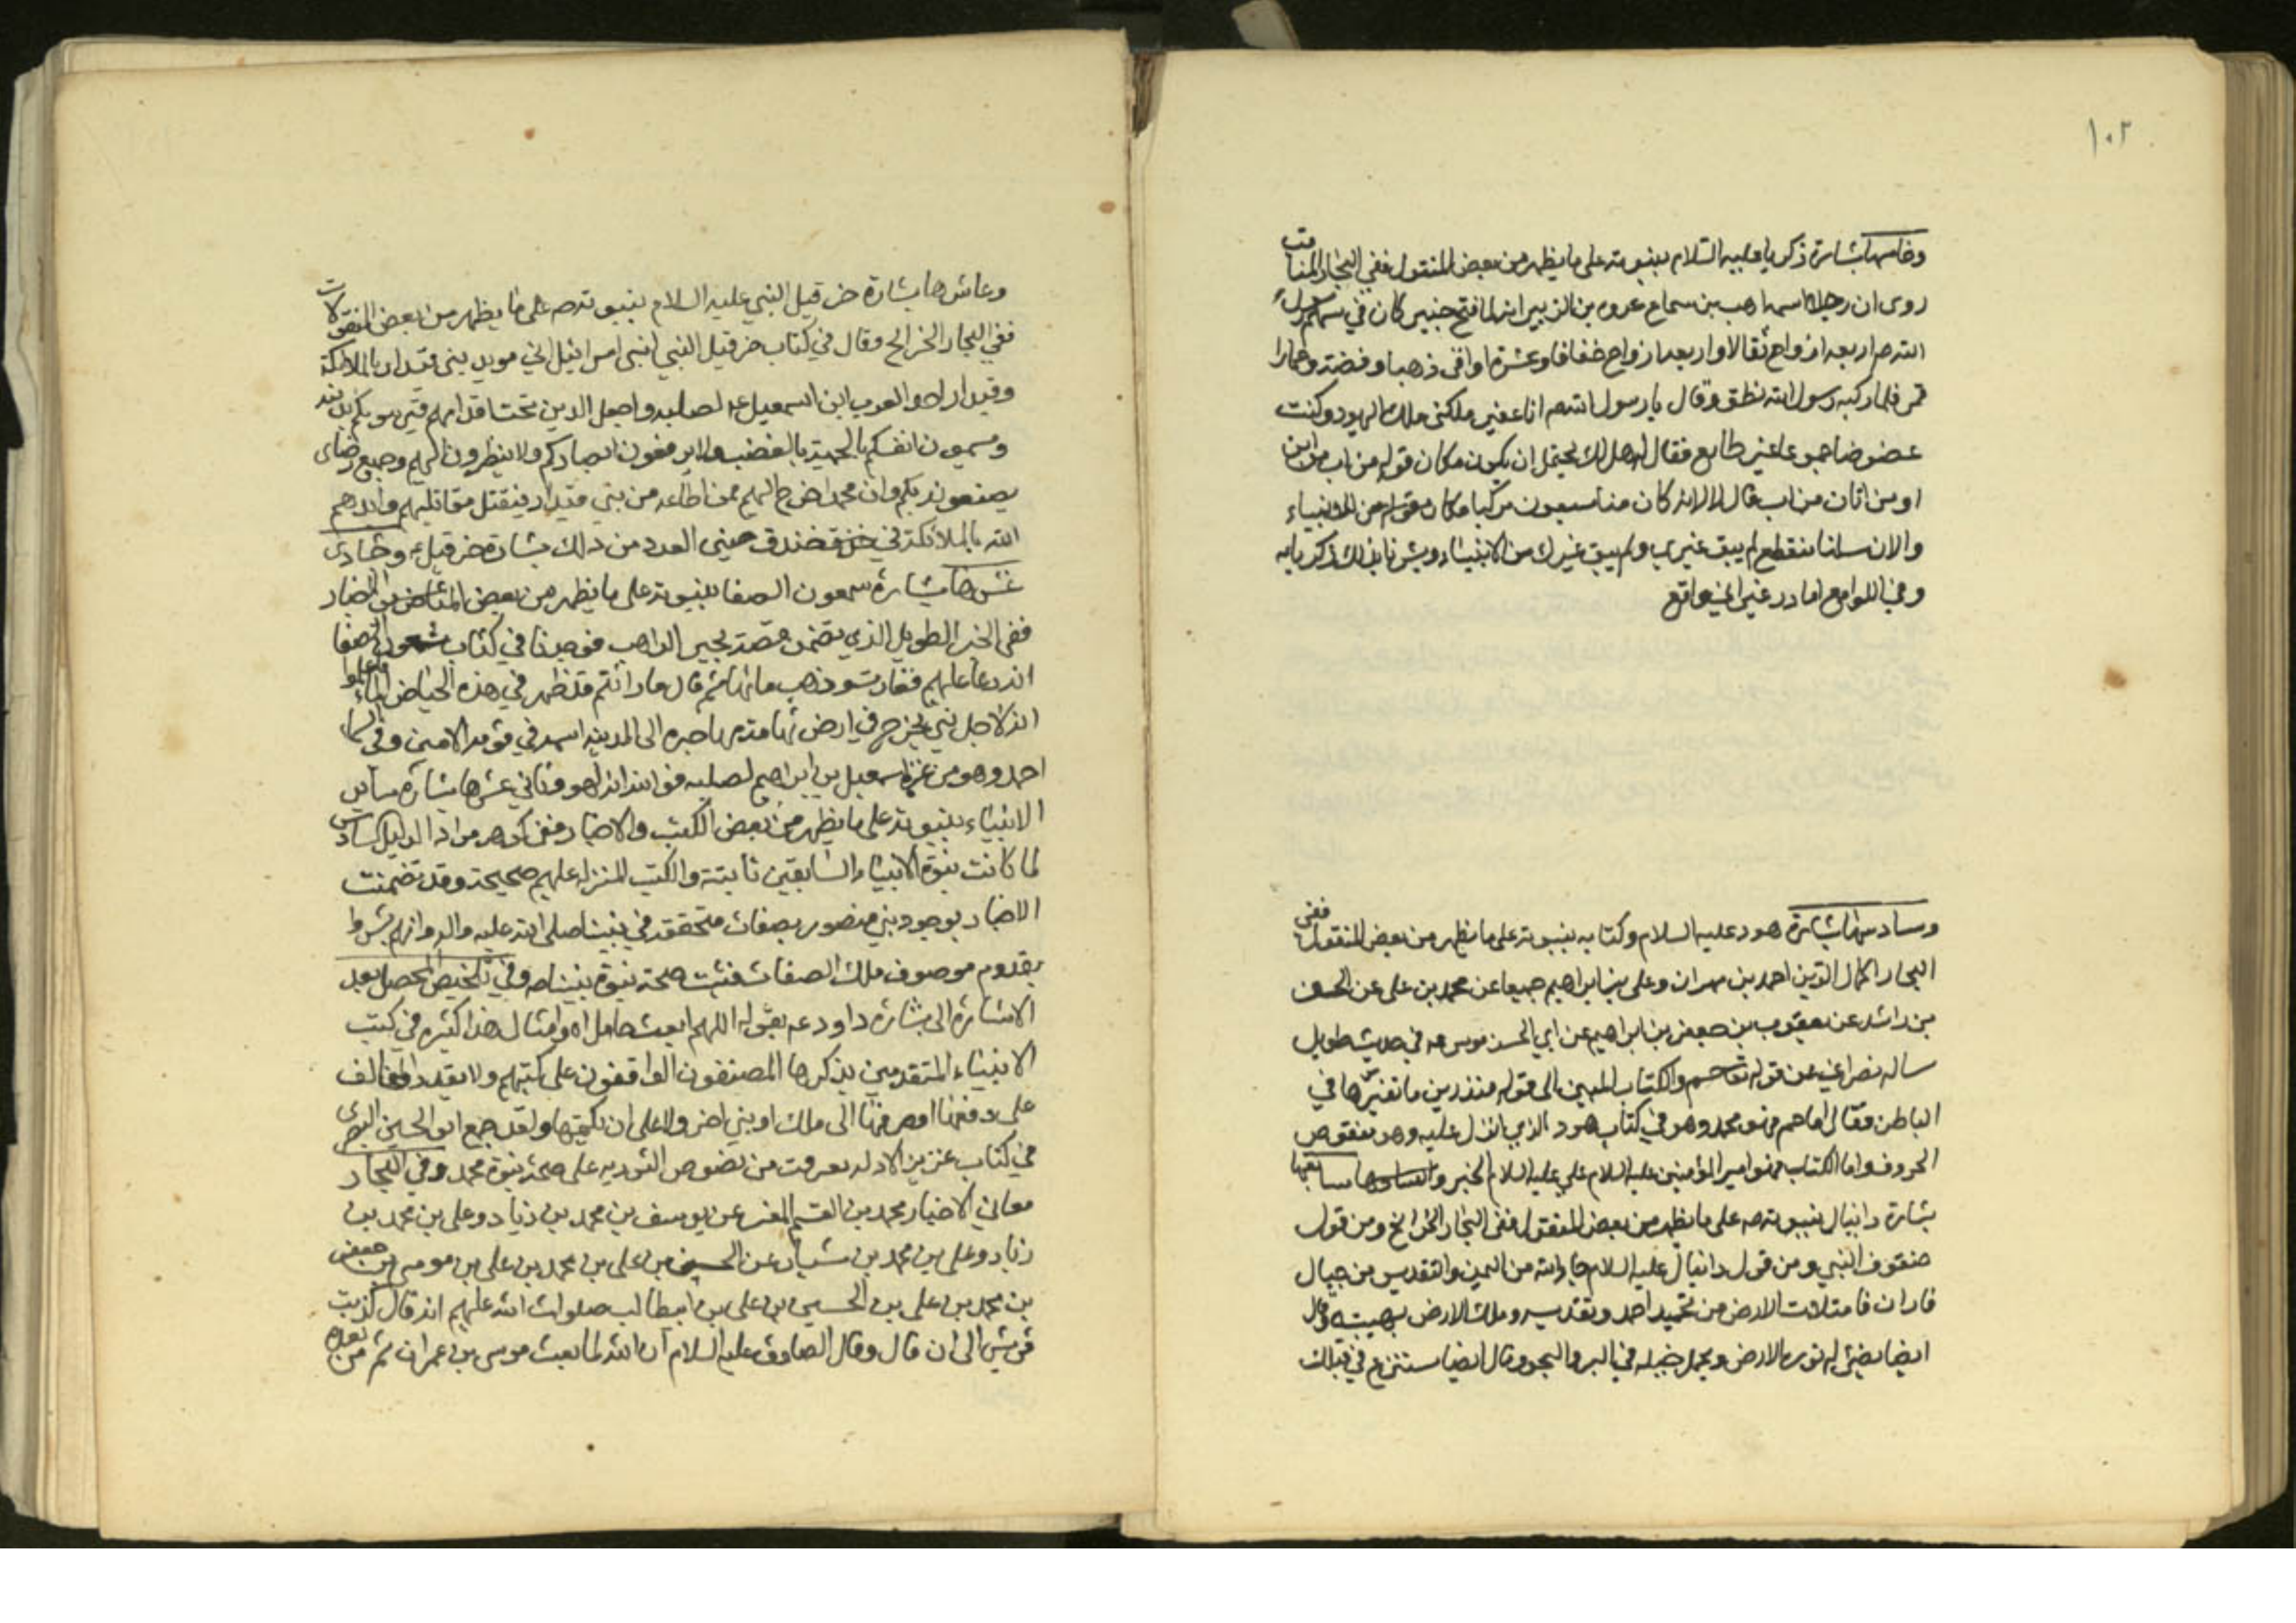 ١٠٢
وخامسها بشارة ذكريا عليه السلام بنبوته على ما يظهر من بعض المنقول ففي البحار المناقب
روى ان رجلا اسمه من سماع عروه بن الزبير انه لما فتح خيبر كان في سهم رسول
الله ص اربعه ازواج ثقالا واربعه ازواج خفافا وعشرة اواقى ذهبا وفضة وحمارا
فلما ركبه رسول الله نطق وقال يا رسول الله انا عفير ملكنى ملك اليهود وكنت
عضوضا جموعا غير طايع فقال له هل لك
او من اتان من اب قال لا لانه كان منا سبعون مركبا من الانبياء
والان نسلنا منقطع لم يبق غيري ولم يبق غيرك من الانبياء وبشرنا بذلك ذكريا به
وفي اللوامع
وسادسها بشارة هود عليه السلام وكتابه بنبوته على ما يظهر من بعض المنقول ففي
البحار اكمال الدين احمد بن مهران وعلى بن ابراهيم جميعا عن محمد بن على عن الحسن
بن راشد عن يعقوب بن جعفر بن ابراهيم عن ابي الحسن موسى عه في حديث طويل
ساله نصراني عن قوله تعا حم والكتاب المبين الى قوله منذرين ما تفسيرها في
الباطن فقال اما حم فهو محمد وهو في كتاب هود الذي انزل عليه وهو منقوص
الحروف واما الكتاب فهو امير المؤمنين عليه السلام علي عليه السلام الخبر وسابعها
بشارة دانيال بنبوته صه على ما يظهر من بعض المنقول ففي البحار الخرائج ومن قول
حنقوف النبي ومن قول دانيال عليه السلام جاء الله من اليمن والتقديس من جبال
فاران فامتلات الارض من تحميد احمد وتقديسه وملك الارض بهيبته وقال
ايضا يضئ له نوره الارض ويحمل خيله في البر والبحر وقال ايضا ستنزع في قسيك
وعاشرها بشارة حزقيل النبي عليه السلام بنبوته صه على ما يظهر من بعض المنقولات
ففي البحار الخرائج وقال في كتاب حزقيل النبي لبني اسرائيل اني مويد بني قيدار بالملائكة
وقيدار ابو العرب ابن اسمعيل عه لصلبه واجعل الدين تحت اقدامهم
انفسكم بالحمية والغضب ولا ترفعون ابصاركم ولا ينظرون اليهم وجميع رضاى
يصنعونه بكم وان محمدا خرج اليهم بمن اطاعه من بني قيدار فيقتل مقاتليهم وايدهم
الله بالملائكة في خندق حنين العدد من ذلك بشارة حزقيل عه وحادى
عشرها بشارة سمعون الصفا بنبوته على ما يظهر من بعض
ففي الخبر الطويل الذي تضمن قصة بحير الراهب فوجدنا في كتاب شمعون الصفا
انه دعا عليهم فغارت وذهب ماؤها ثم قال ما رائتم قد ظهر في هذه الحياض الماء فاعلموا
انه لاجل نبي يخرج في ارض تهامة مهاجره الى المدينة اسمه في قومه الامين وفي السماء
احمد وهو من عترة اسمعيل بن ابراهيم لصلبه فوالله انه لهو وثاني عشرها بشارة سائر
الانبياء بنبوته على ما يظهر من بعض الكتب والاخبار ففي كوهر مراد الدليل السادس
لما كانت نبوة الانبياء السابقين ثابتة والكتب المنزلة عليهم صحيحة وقد تضمنت
الاخبار بوجود نبي منصور بصفات متحققة في نبينا صلى الله عليه واله وانهم بشروا
بقدوم موصوف بتلك الصفات فثبت صحة نبوة نبينا صه وفي تلخيص المحصل بعد
الاشارة الى بشارة داود عه بقوله اللهم ابعث وامثال هذا كثيرة في كتب
الانبياء المتقدمين يذكرها المصنفون الواقفون على كتبهم ولا يقدر المخالف
على دفعها او صرفها الى ملك او بنى اخر ولا على ان يكتمها ولقد جمع ابو الحسين البصرى
في كتاب غرر الادله بعرفت من نصوص التورية على صحة نبوة محمد وفي البحار
معاني الاخبار محمد بن القسم المفسر عن يوسف بن محمد بن زياد وعلى بن محمد بن
زياد وعلى بن محمد بن سيار عن الحسن بن على بن محمد بن على بن موسى بن جعفر
بن محمد بن على بن الحسين بن على بن ابيطالب صلوات الله عليهم انه قال كذبت
قريش الى ان قال وقال الصادق عليه السلام ان الله لما بعث موسى بن عمران ثم من بعده